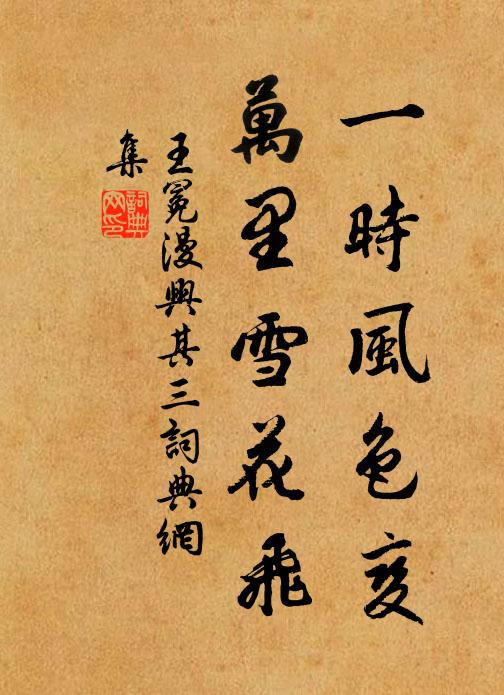 一時風色变
萬里雪花飛
王冕漫興其三詞典網
集
詞典网印